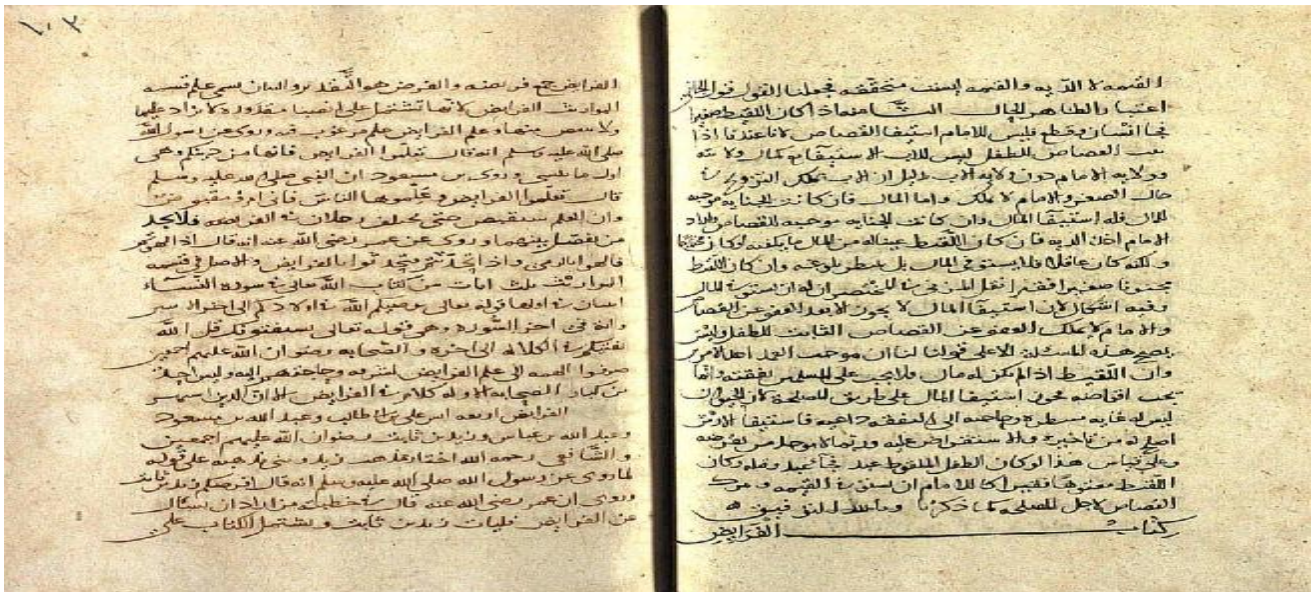 القيمه لا الديه والقيمه ليست متحققه فجعلنا القول قول الجاني
اعتبارا لظاهر الحال الثامنه اذا كان اللقيط صغيرا
فجا انسان وقطع فليس للامام استيفا القصاص لانا عندنا اذا
القصاص للطفل ليس للاب الاستيفا
وولايه الامام دون ولايه الاب بدليل ان الاب يملك التزويج في
حال الصغر والامام لا يملك واما المال فان كانت الجنايه موجبه
للمال فله استيفا المال وان كانت الجنايه موجبه للقصاص
الامام اخذ الديه فان كان اللقيط له من المال ما يكفيه او كان
ولكنه كان عاقلا فلا يستوفي المال بل ينتظر بلوغه وان كان اللقيط
مجنونا صغيرا فقيرا نقل المزني في المختصر ان له ان يستوفي المال
وفيه اشكال لان استيفا المال لا يجوز الا بعد العفو عن القصاص
والامام لا يملك العفو عن القصاص الثابت للطفل وليس
هذه المسئله الا على قولنا ان موجب العمد احد الامرين
وان اللقيط اذا لم يكن له مال فلا يجب على المسلمين نفقته وانما
يجب اقراضه فيجوز استيفا المال على طريق المصلحة لان الجنون
ليس له غايه منتظره وحاجته الى النفقه داعيه فاستيفا الارش
اصلح له من تاخيره والاستقراض عليه وربما لا يوجد من يقرضه
وعلى قياس هذا لو كان الطفل الملقوط عبد فجا عبد وقتله وكان
اللقيط معتوها فقيرا كان للامام ان يستوفي القيمه ويترك
القصاص لاجل المصلحه لما ذكرنا وبالله التوفيق ه
كتاب الفرايض
١٠٣
الفرايض جمع فريضه والفرض هو التقدير والبيان سمى علم قسمه
المواريث الفرايض لانها تشتمل على انصبا مقدوره لا يزاد عليها
ولا ينقص منها وعلم الفرايض علم مرغوب فيه روى عن رسول الله
صلى الله عليه وسلم انه قال تعلموا الفرايض فانها من دينكم وهي
اول ما ينسى وروى بن مسعود ان النبي صلى الله عليه وسلم
قال تعلموا الفرايض وعلموها الناس فاني امرؤ مقبوض
وان العلم سيقبض حتى يختلف رجلان في الفرايضه فلا يجد
من يفصل بينهما وروى عن عمر رضي الله عنه انه قال اذا لهوتم
فالهوا بالرمي واذا تحدثتم تحدثوا بالفرايض والاصل في قسمه
المواريث ثلث ايات من كتاب الله تعالى في سورة النساء
اثنتان في اولها قوله تعالى يوصيكم الله في اولادكم الى اخر
وايه في اخر السوره وهو قوله تعالى يستفتونك قل الله
يفتيكم في الكلاله الى اخره والصحابه رضوان الله عليهم اجمعين
صرفوا الهمه الى علم الفرايض لشرفه وحاجتهم اليه وليس احد
من كبار الصحابه الا وله كلام في الفرايض الا ان الذين
الفرايض اربعه امير على بن ابي طالب وعبد الله بن مسعود
وعبد الله بن عباس وزيد بن ثابت رضوان الله عليهم اجمعين
والشافعي رحمه الله اختار مذهب زيد وبنى مذهبه على قوله
لما روى عن رسول الله صلى الله عليه وسلم انه قال افرضكم زيد بن ثابت
وروى ان عمر رضي الله عنه قال في خطبته من اراد ان يسئال
عن الفرايض فليات زيد بن ثابت ويشتمل الكتاب على